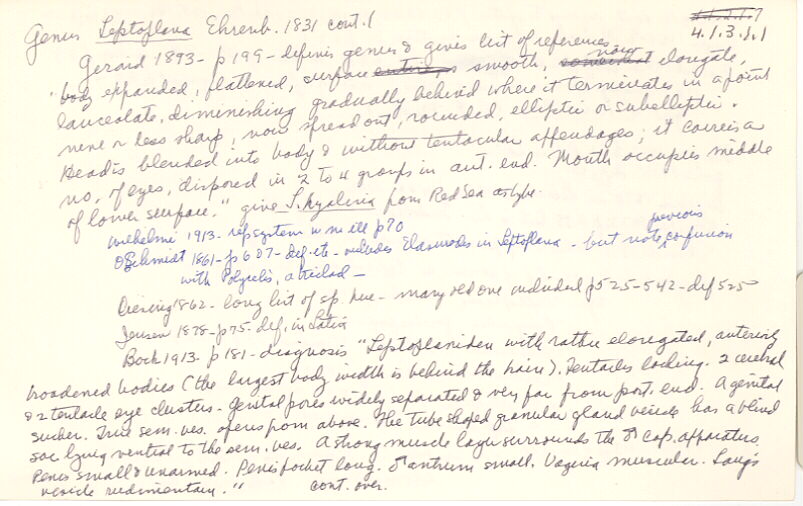 Genus Leptoplana Ehrenb. 1831 cont.(
4.1.3.1.1
Gerard 1893 - p 199 - defines genus & gives list of references
"body expanded, flattened, surface smooth, now elongate,
lanceolate, diminishing gradually behind where it terminates in a point
more or less sharp, now spread out, rounded, elliptic or subelliptic.
Head is blended into body & without tentacular appendages; it carries a
no. of eyes, disposed in 2 to 4 groups in ant. end. Mouth occupies middle
of lower surface." give L. hyalina from Red Sea as type.
Wilhelmi 1913 - rep system w m ill p70
O Schmidt 1861 - p 6 def. etc - includes Elasmodes in Leptoplana - but note previous confusion
with Polycelis, a triclad -
Diesing 1862 - long list of sp. here - many old one included p 525-542 - def 525
Jensen 1878 - p75 - def. in Latin
Bock 1913 - p 181 - diagnosis "Leptoplanidae with rather elongated, anteriorly
broadened bodies (the largest body width is behind the brain). Tentacles lacking. 2 cerebral
& 2 tentacle eye clusters. Genital pores widely separated & very far from post. end. A genital
sucker. True sem. ves. opens from above. The tube shaped granular gland vesicle has a blind
sac lying ventral to the sem. ves. A strong muscle layer surrounds the ♂ cop. apparatus.
Penis small & unarmed. Penis pocket long. ♂ antrum small. Vagina muscular. Lang's
vesicle rudimentary." cont. over.